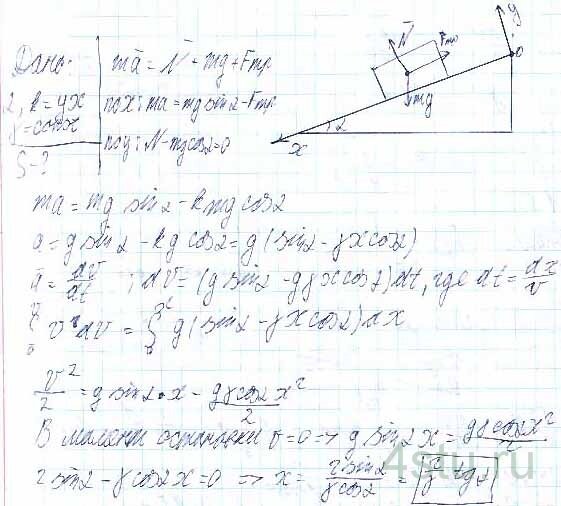 Дано:
α, k = γx
γ = const
S - ?
ma̅ = N̅ + mg + Fтр
по x: ma = mg sinα - Fтр
по y: N - mg cosα = 0
N̅ Fтр mg α x y O
ma = mg sinα - kmg cosα
a = g sinα - kg cosα = g(sinα - γx cosα)
a̅ = dv̅/dt ; dV = (g sinα - gγx cosα)dt, где dt = dx/v
∫ v dv = ∫ g(sinα - γx cosα)dx
v²/2 = g sinα·x - gγcosα x²/2
В момент остановки v = 0 => g sinα x = gγcosα x²/2
2 sinα - γ cosα x = 0 => x = 2 sinα/γcosα = 2/γ tgα
4stu.ru